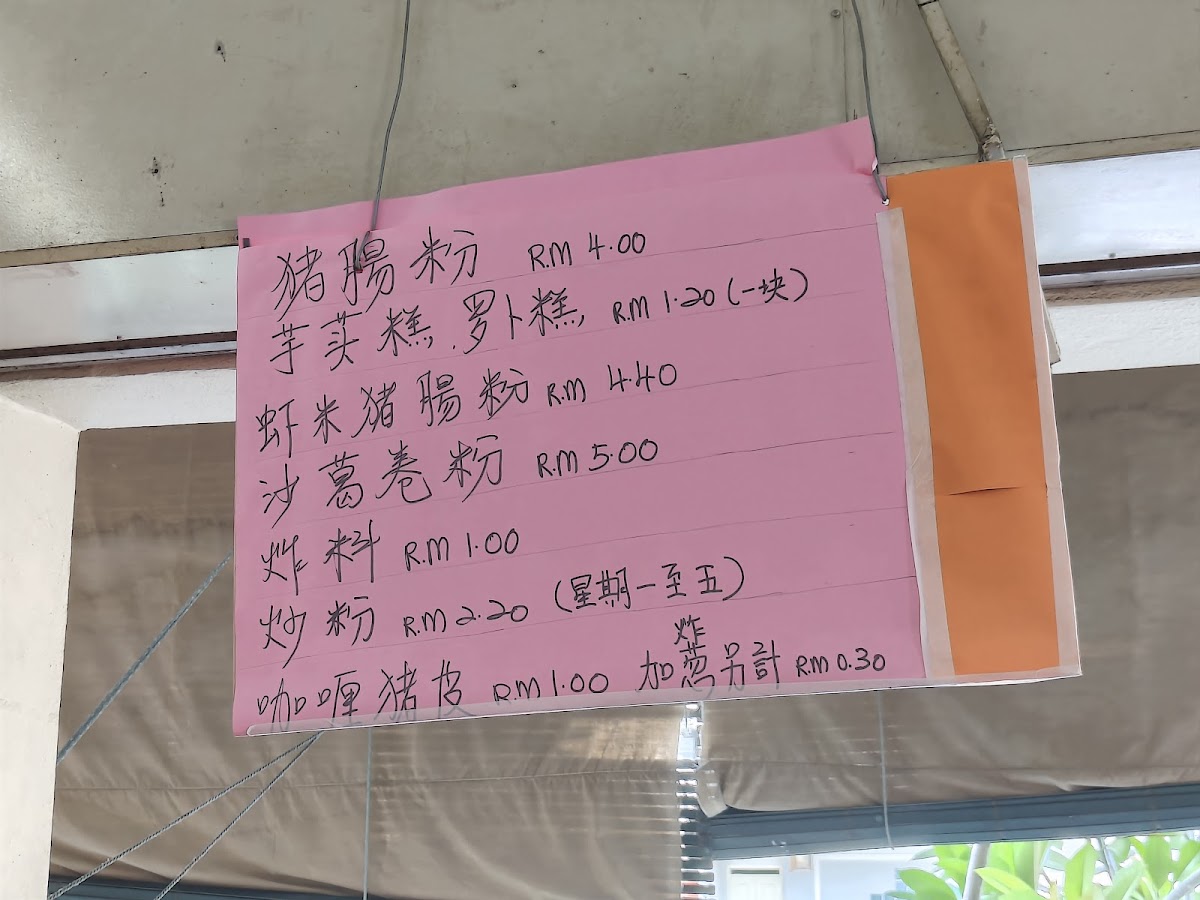 猪腸粉 RM 4.00
芋头糕, 罗卜糕, RM 1.20 (一块)
虾米猪腸粉 RM 4.40
沙葛卷粉 RM 5.00
炸料 RM 1.00
炒粉 RM 2.20 (星期一至五)
咖喱猪皮 RM 1.00 加炸葱另計 RM 0.30